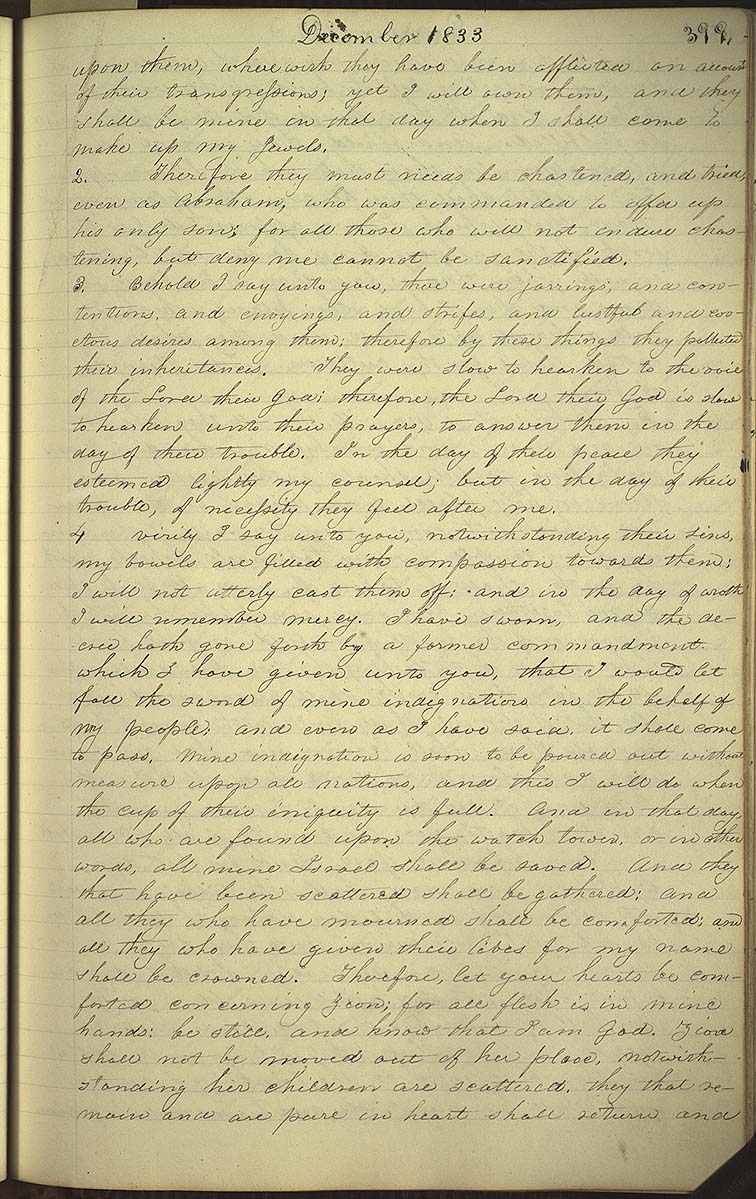 December 1833 399,
upon them, wherewith they have been afflicted on account
of their transgressions; yet I will own them, and they
shall be mine in that day when I shall come to
make up my Jewels.
2. Therefore they must needs be chastened, and tried,
even as Abraham, who was commanded to offer up
his only son; for all those who will not endure chas-
tening, but deny me cannot be sanctified.
3. Behold I say unto you, there were jarrings, and con-
tentions, and envyings, and strifes, and lustful and cov-
etous desires among them; therefore by these things they polluted
their inheritances. They were slow to hearken to the voice
of the Lord their God; therefore, the Lord their God is slow
to hearken unto their prayers, to answer them in the
day of their trouble. In the day of their peace they
esteemed lightly my counsel; but in the day of their
trouble, of necessity they feel after me.
4 verily I say unto you, notwithstanding their sins,
my bowels are filled with compassion towards them;
I will not utterly cast them off; and in the day of wrath
I will remember mercy. I have sworn, and the de-
cree hath gone forth by a former commandment
which I have given unto you, that I would let
fall the sword of mine indignation in the behalf of
my people; and even as I have said, it shall come
to pass. Mine indignation is soon to be poured out without
measure upon all nations, and this I will do when
the cup of their iniquity is full. And in that day,
all who are found upon the watch tower, or in other
words, all mine Israel shall be saved. And they
that have been scattered shall be gathered; and
all they who have mourned shall be comforted; and
all they who have given their lives for my name
shall be crowned. Therefore, let your hearts be com-
forted concerning Zion; for all flesh is in mine
hands: be still, and know that I am God. Zion
shall not be moved out of her place, notwith-
standing her children are scattered, they that re-
main and are pure in heart shall return and